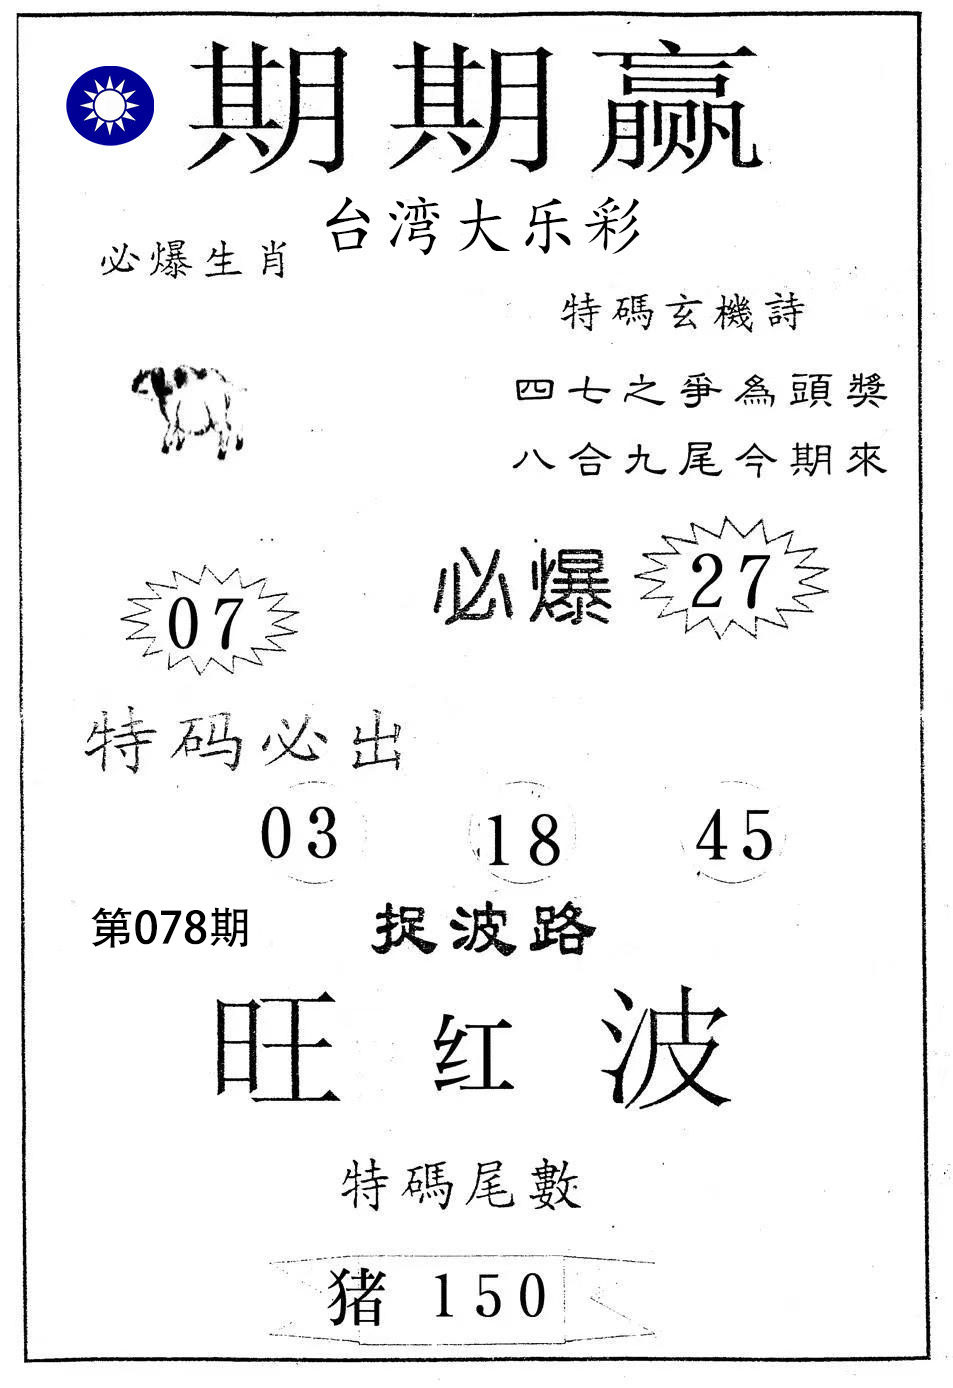 期期赢
台湾大乐彩
必爆生肖
特碼玄機詩
四七之爭為頭獎
八合九尾今期來
必爆 27
07
特码必出
03 18 45
第078期 捉波路
旺红波
特碼尾數
猪 150